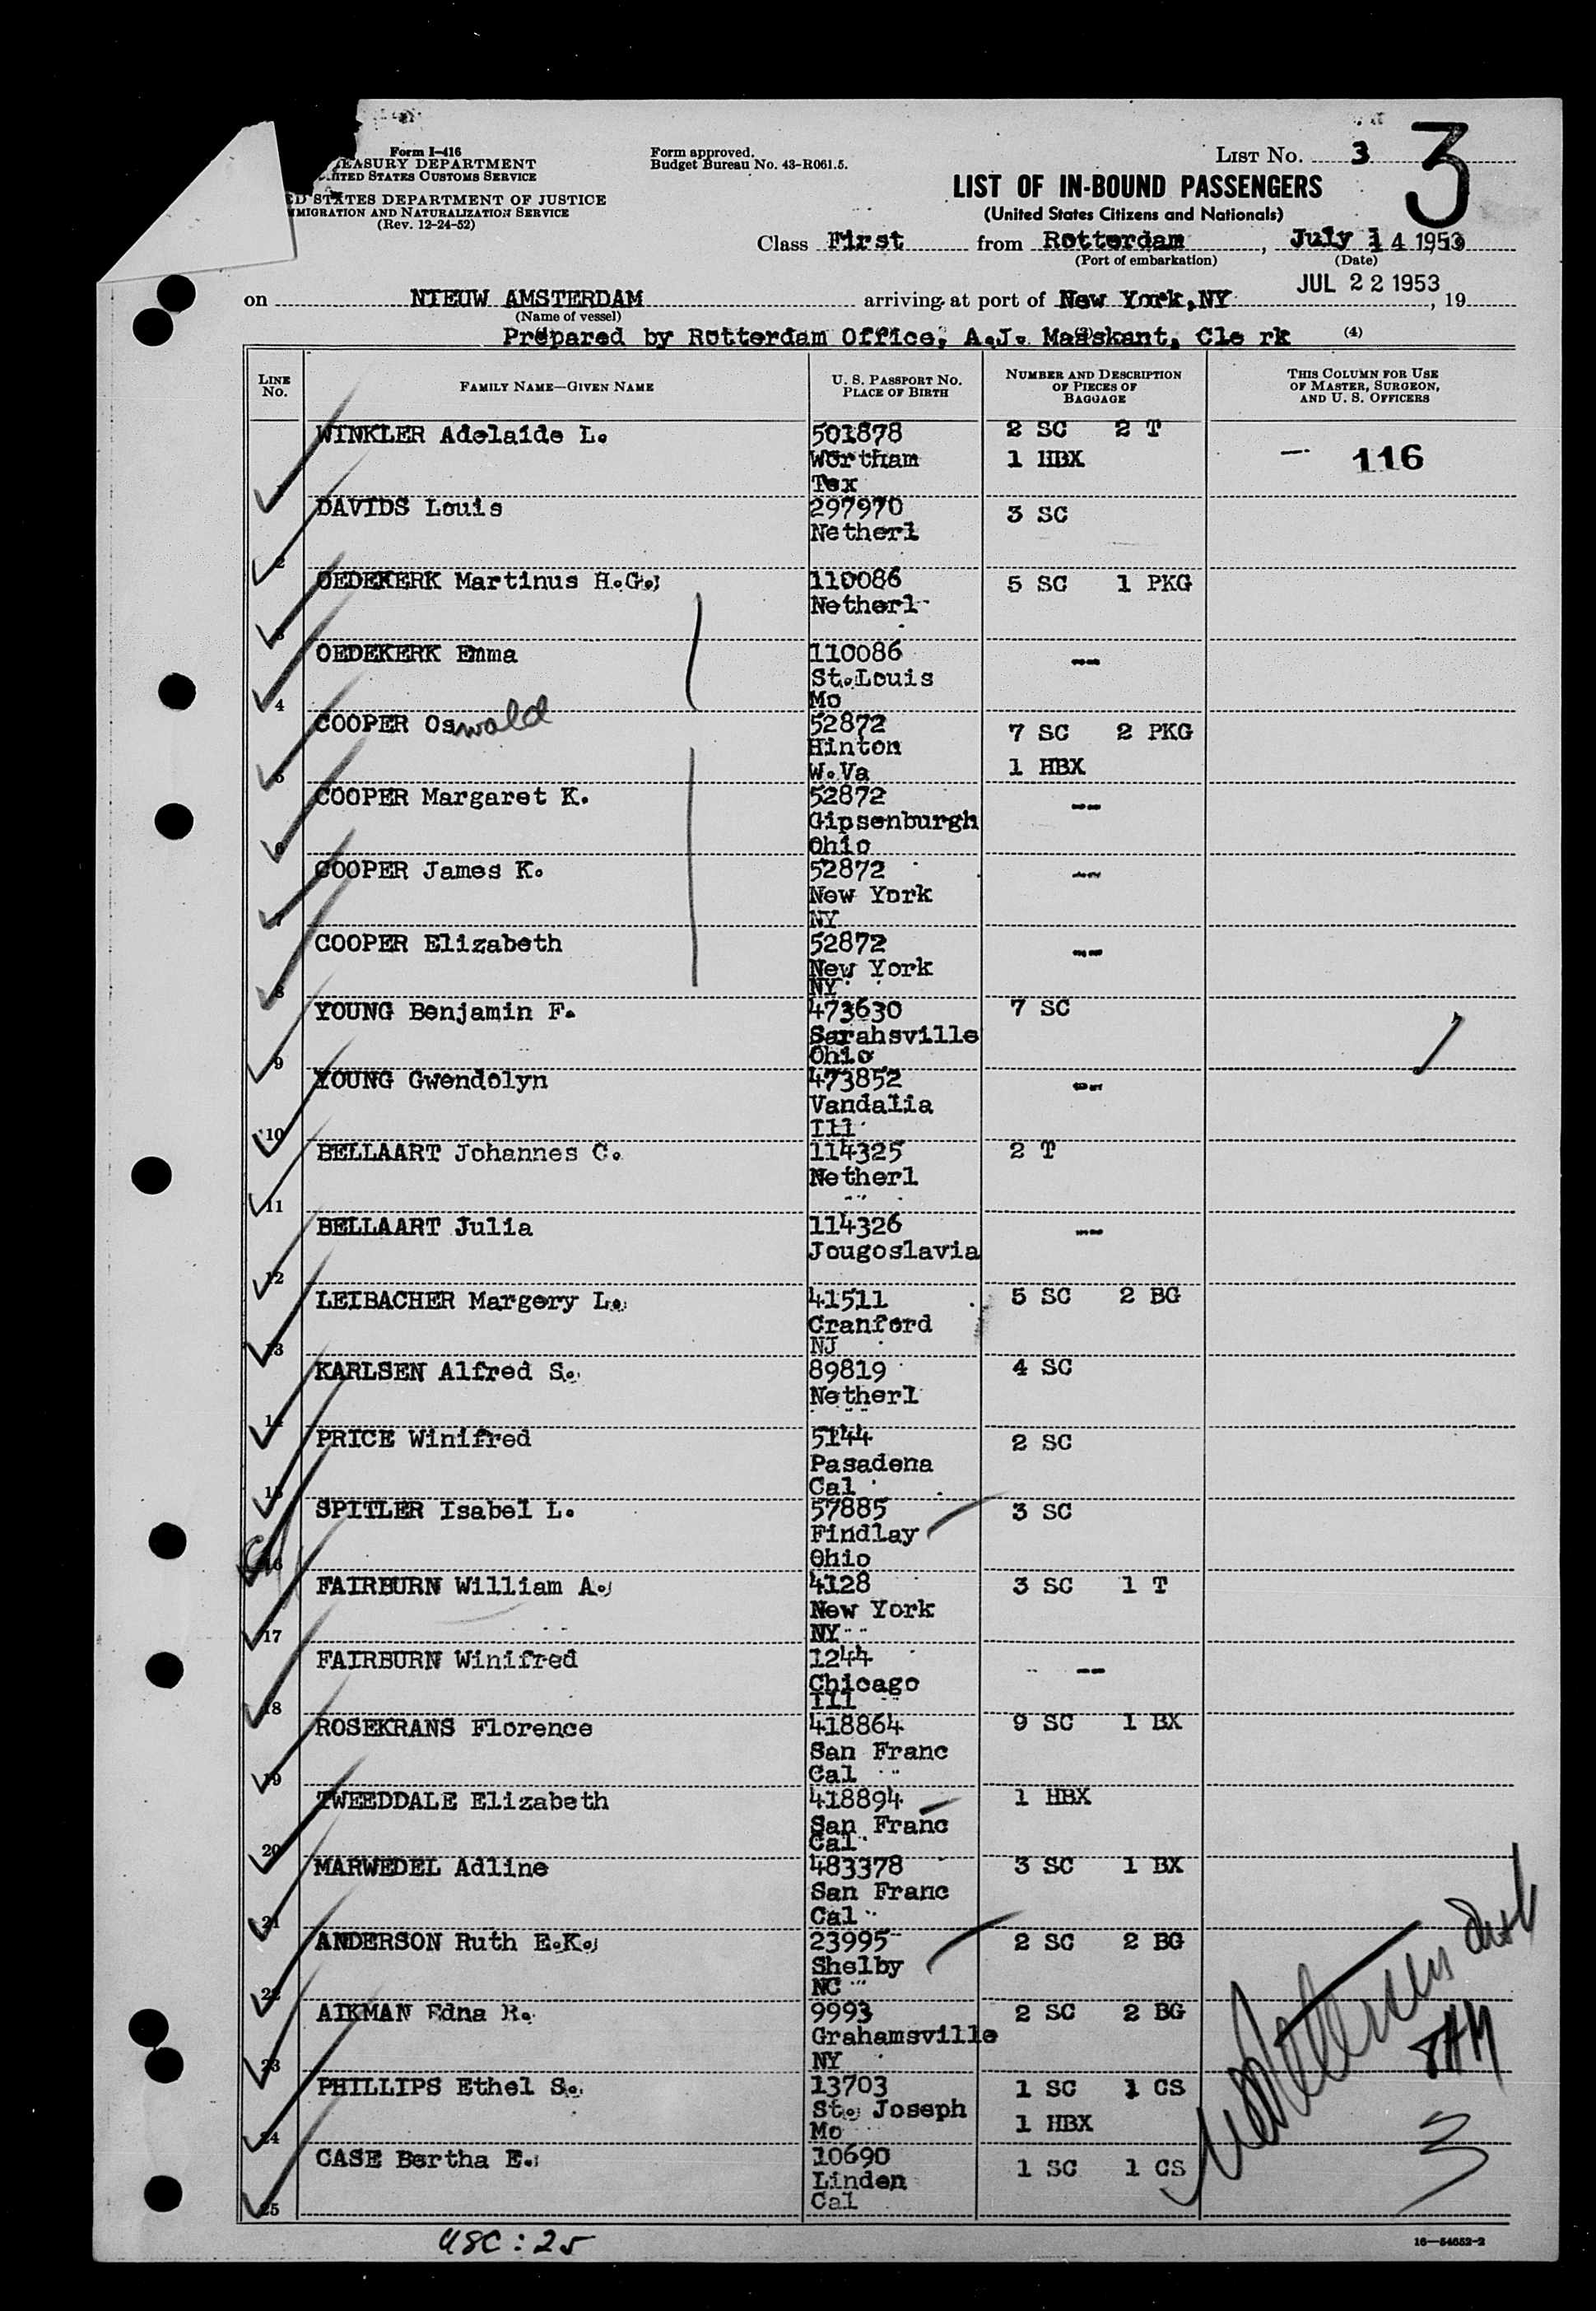 Form I-416
Form approved.
LIST No. 3
3
EASURY DEPARTMENT
Budget Bureau No. 43-R061.5.
ITED STATES CUSTOMS SERVICE
LIST OF IN-BOUND PASSENGERS
D STATES DEPARTMENT OF JUSTICE
(United States Citizens and Nationals)
MIGRATION AND NATURALIZATION SERVICE
(Rev. 12-24-52)
Class First from Rotterdam, July 14 1953
(Port of embarkation) (Date)
JUL 22 1953
on NIEUW AMSTERDAM arriving at port of New York, NY , 19
(Name of vessel)
Prepared by Rotterdam Office, A.J. Maaskant, Cle rk (4)
LINE No.
FAMILY NAME—GIVEN NAME
U. S. PASSPORT NO. PLACE OF BIRTH
NUMBER AND DESCRIPTION OF PIECES OF BAGGAGE
THIS COLUMN FOR USE OF MASTER, SURGEON, AND U. S. OFFICERS
WINKLER Adelaide L. 501878 2 SC 2 T
Wortham 1 HBX — 116
1 Tex
DAVIDS Louis 297970 3 SC
Netherl
2
OEDEKERK Martinus H.G. 110086 5 SC 1 PKG
Netherl
3
OEDEKERK Emma 110086 --
St.Louis
4 Mo
COOPER Oswald 52872 7 SC 2 PKG
Hinton
5 W.Va 1 HBX
COOPER Margaret K. 52872 --
Gipsenburgh
6 Ohio
COOPER James K. 52872 --
New York
7 NY
COOPER Elizabeth 52872 --
New York
8 NY
YOUNG Benjamin F. 473630 7 SC
Sarahsville
9 Ohio
YOUNG Gwendolyn 473852 --
Vandalia
10 Ill
BELLAART Johannes C. 114325 2 T
Netherl
11
BELLAART Julia 114326 --
Jougoslavia
12
LEIBACHER Margery L. 41511 5 SC 2 BG
Cranford
13 NJ
KARLSEN Alfred S. 89819 4 SC
Netherl
14
PRICE Winifred 5144 2 SC
Pasadena
15 Cal
SPITLER Isabel L. 57885 3 SC
Findlay
16 Ohio
FAIRBURN William A. 4128 3 SC 1 T
New York
17 NY
FAIRBURN Winifred 1244 --
Chicago
18 Ill
ROSEKRANS Florence 418864 9 SC 1 BX
San Franc
19 Cal
TWEEDDALE Elizabeth 418894 1 HBX
San Franc
20 Cal
MARWEDEL Adline 483378 3 SC 1 BX
San Franc
21 Cal
ANDERSON Ruth E.K. 23995 2 SC 2 BG
Shelby
22 NC
AIKMAN Edna R. 9993 2 SC 2 BG
Grahamsville
23 NY
PHILLIPS Ethel S. 13703 1 SC 1 CS
St. Joseph 1 HBX
24 Mo
CASE Bertha E. 10690 1 SC 1 CS
Linden
25 Cal
3
USC : 25
16—54652-2